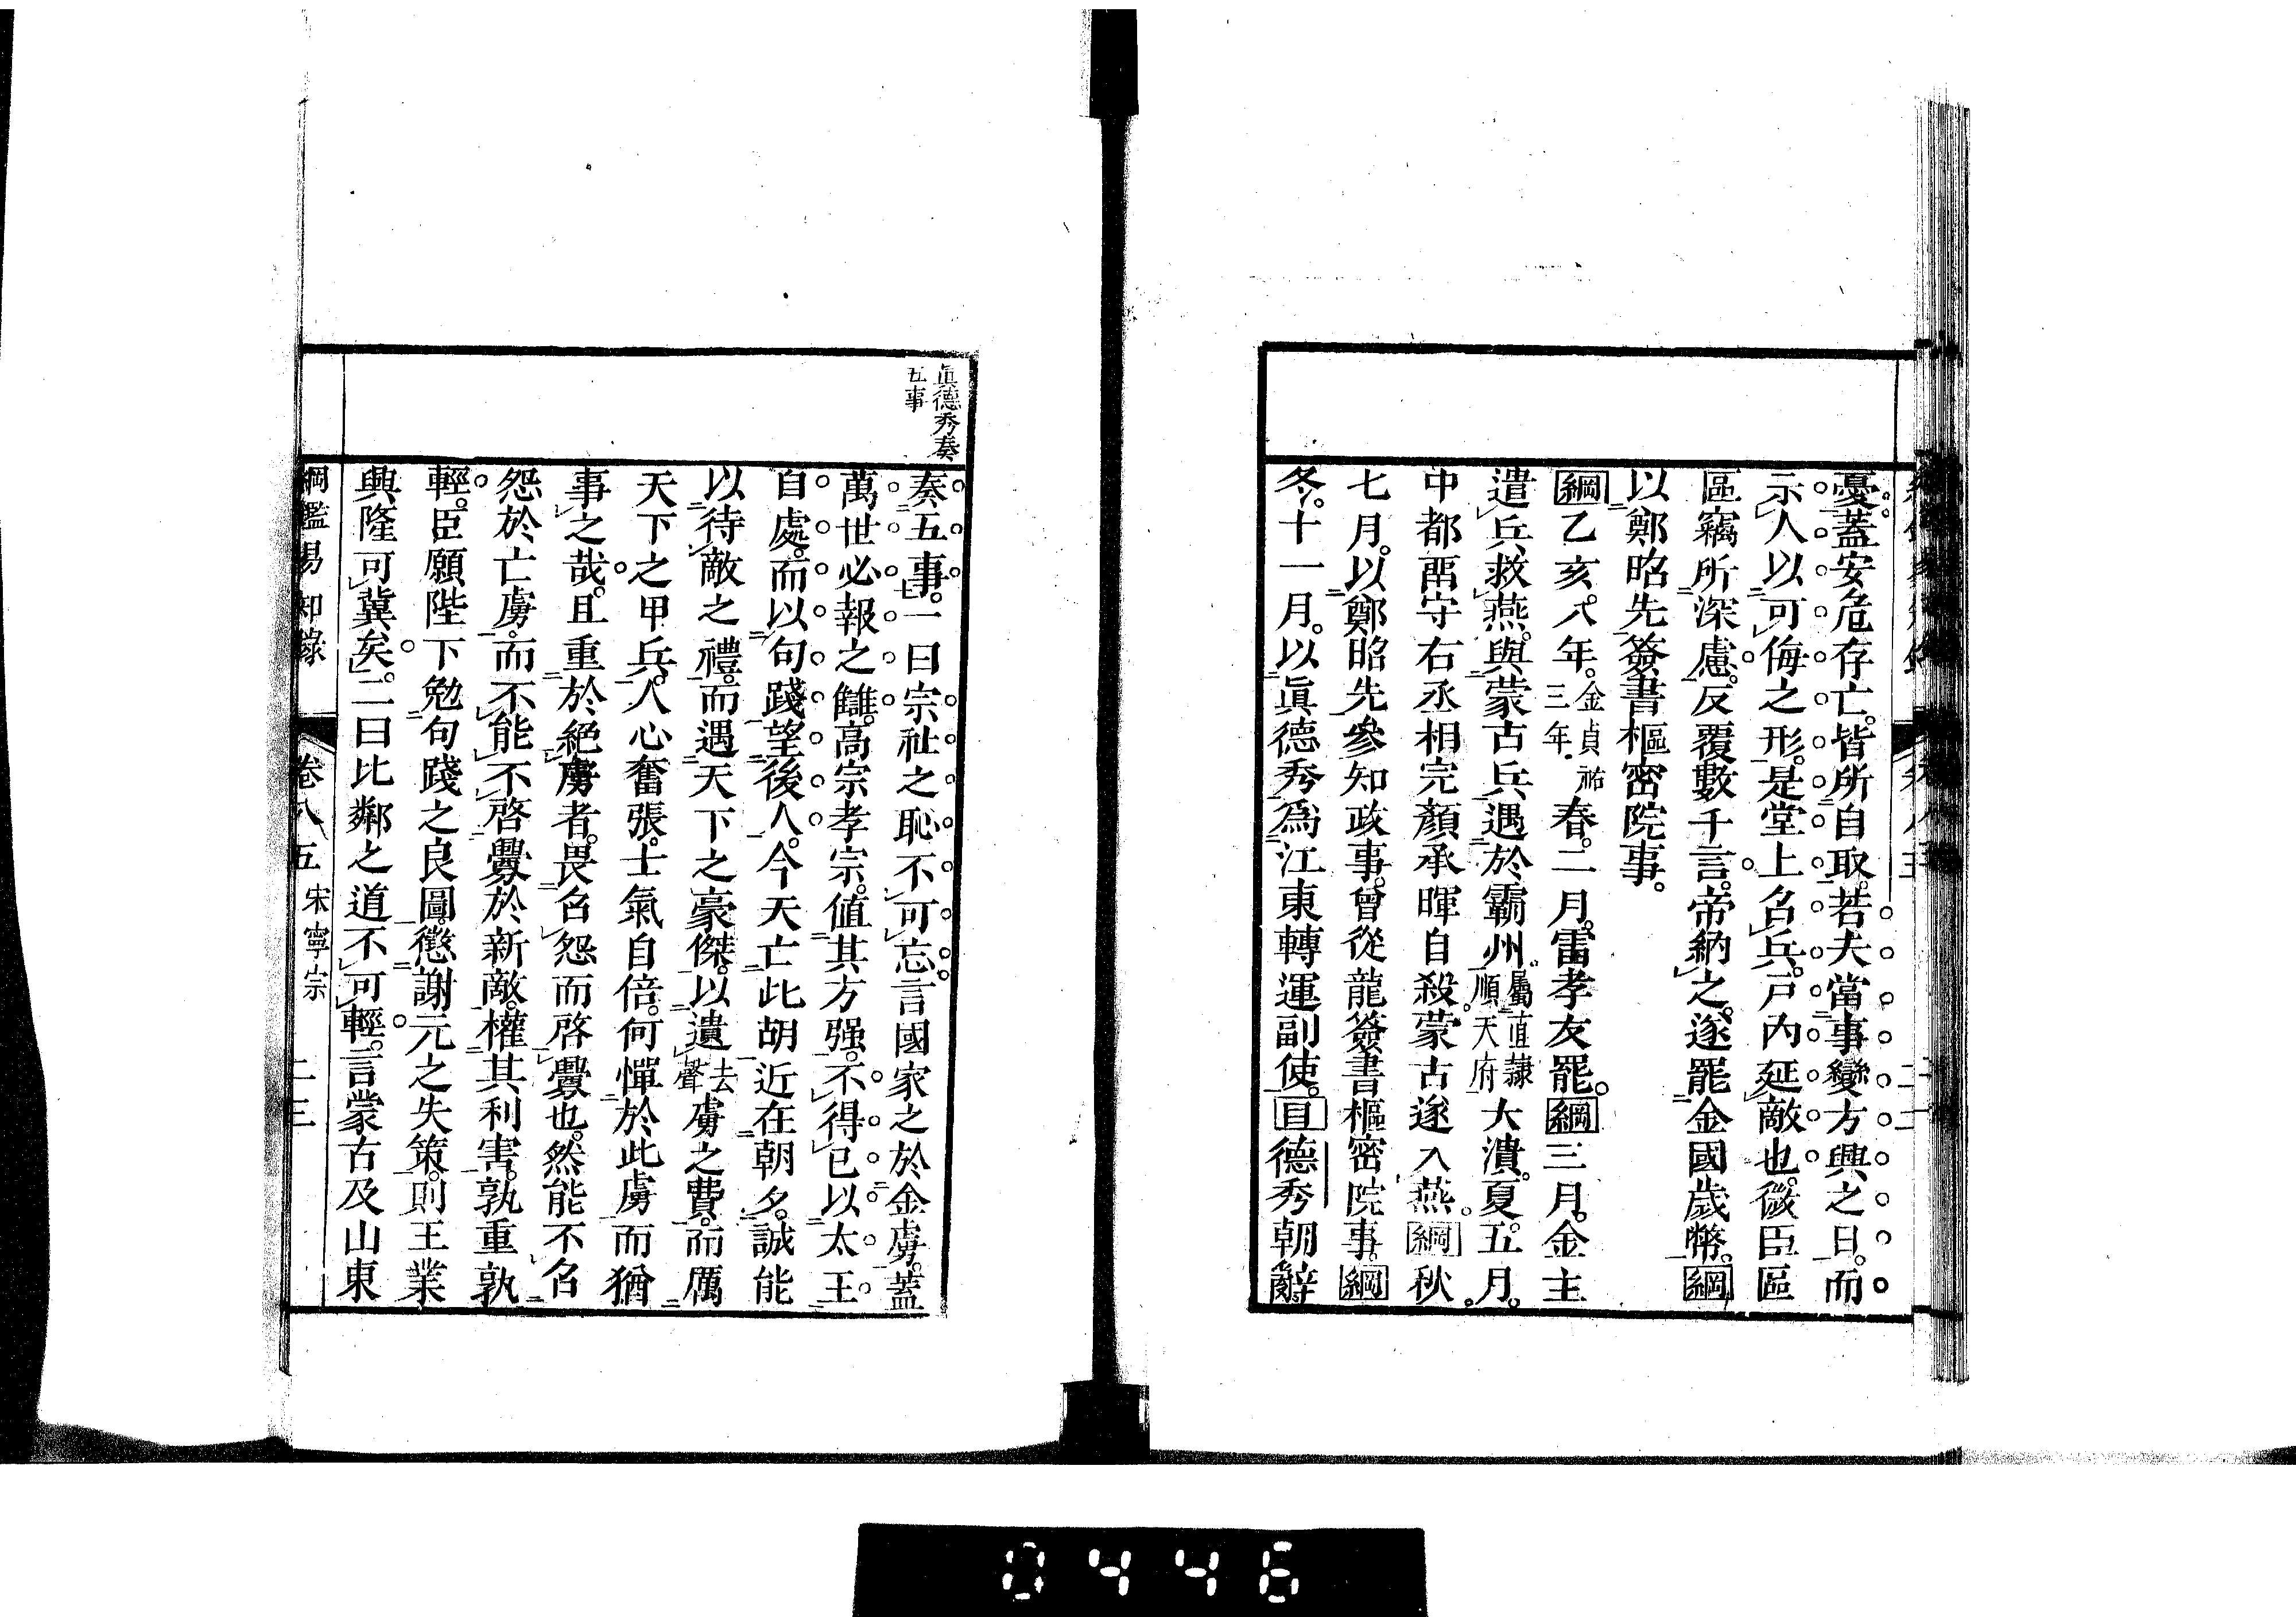 憂。蓋安危存亡。皆所自取。若夫當事變方興之日。而
示人以可侮之形。是堂上召兵。戸內延敵也。微臣區
區竊所深慮。反覆數千言。帝納之。遂罷金國歲幣。綱
以鄭昭先簽書樞密院事。
綱乙亥。八年。金貞祐三年。春。二月。雷孝友罷。綱三月。金主
遣兵救燕。與蒙古兵遇於霸州。屬直隸順天府大潰。夏。五月。
中都畱守右丞相完顏承暉自殺。蒙古遂入燕。綱秋。
七月。以鄭昭先參知政事。曾從龍簽書樞密院事。綱
冬。十一月。以眞德秀爲江東轉運副使。目德秀朝辭
眞德秀奏
五事
奏五事。一曰宗社之恥不可忘。言國家之於金虜。蓋
萬世必報之讎。高宗孝宗。值其方强。不得已以太王
自處。而以句踐望後人。今天亡此胡近在朝夕。誠能
以待敵之禮。而遇天下之豪傑。以遺去聲虜之費。而厲
天下之甲兵。人心奮張。士氣自倍。何憚於此虜而猶
事之哉。且重於絕虜者。畏召怨而啓釁也。然能不召
怨於亡虜。而不能不啓釁於新敵。權其利害。孰重孰
輕。臣願陛下勉句踐之良圖。懲謝元之失策。則王業
興隆可冀矣。二曰比鄰之道不可輕。言蒙古及山東
綱鑑易知錄 卷八五 宋寧宗 二三
0446